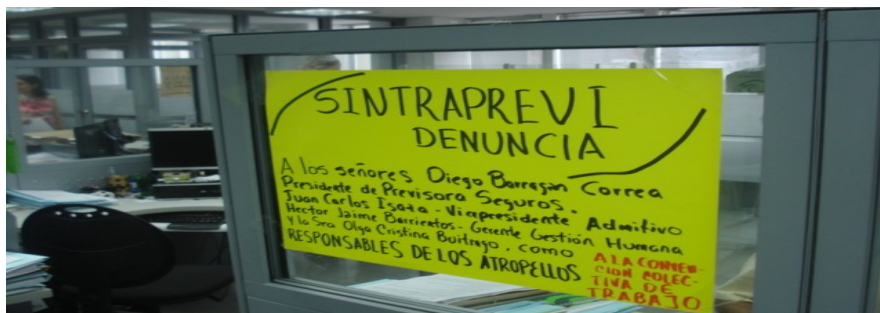 SINTRAPREVI
DENUNCIA
A los señores Diego Barragan Correa
Presidente de Previsora Seguros.
Juan Carlos Isaza - Vicepresidente Admitivo
Hector Jaime Barrientos - Gerente Gestión Humana
y la Sra Olga Cristina Buitrago, como
RESPONSABLES DE LOS ATROPELLOS
A LA CONVEN-
CION COLEC-
TIVA DE
TRABAJO